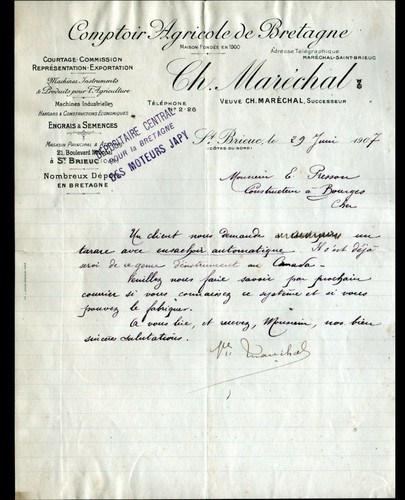 Comptoir Agricole de Bretagne
MAISON FONDÉE EN 1900
Adresse Télégraphique
MARÉCHAL-SAINT-BRIEUC
COURTAGE-COMMISSION
REPRÉSENTATION-EXPORTATION
Ch. Maréchal
Machines, Instruments
& Produits pour l'Agriculture
VEUVE CH. MARÉCHAL, SUCCESSEUR
Machines Industrielles
HANGARS & CONSTRUCTIONS ÉCONOMIQUES
TÉLÉPHONE
N° 2-26
ENGRAIS & SEMENCES
MAGASIN PRINCIPAL &
21, Boulevard
à ST BRIEUC
NOMBREUX DÉPÔTS
EN BRETAGNE
DÉPOSITAIRE CENTRAL
POUR LA BRETAGNE
DES MOTEURS JAPY
St Brieuc, le 29 Juin 1907
(CÔTES-DU-NORD)
Monsieur E. Presson
Constructeur à Bourges
Cher
Un client nous demande un
tarare avec ensacheur automatique. Il s'est déjà
servi de ce genre d'instrument au Canada.
Veuillez nous faire savoir par prochain
courrier si vous connaissez ce système et si vous
pouvez le fabriquer.
A vous lire, et recevez, Monsieur, nos bien
sincères salutations.
Vve Maréchal